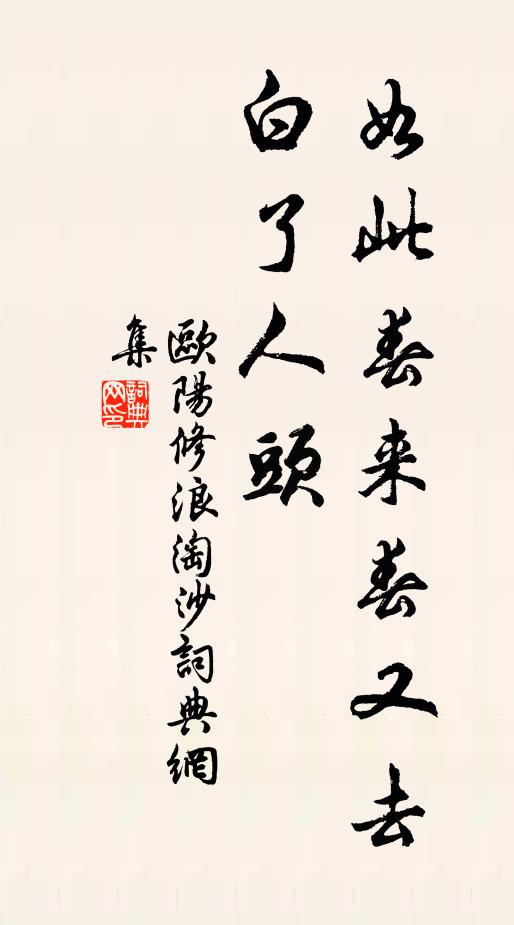 如此春来春又去
白了人頭
歐陽修浪淘沙詞典網
集
詞典網印